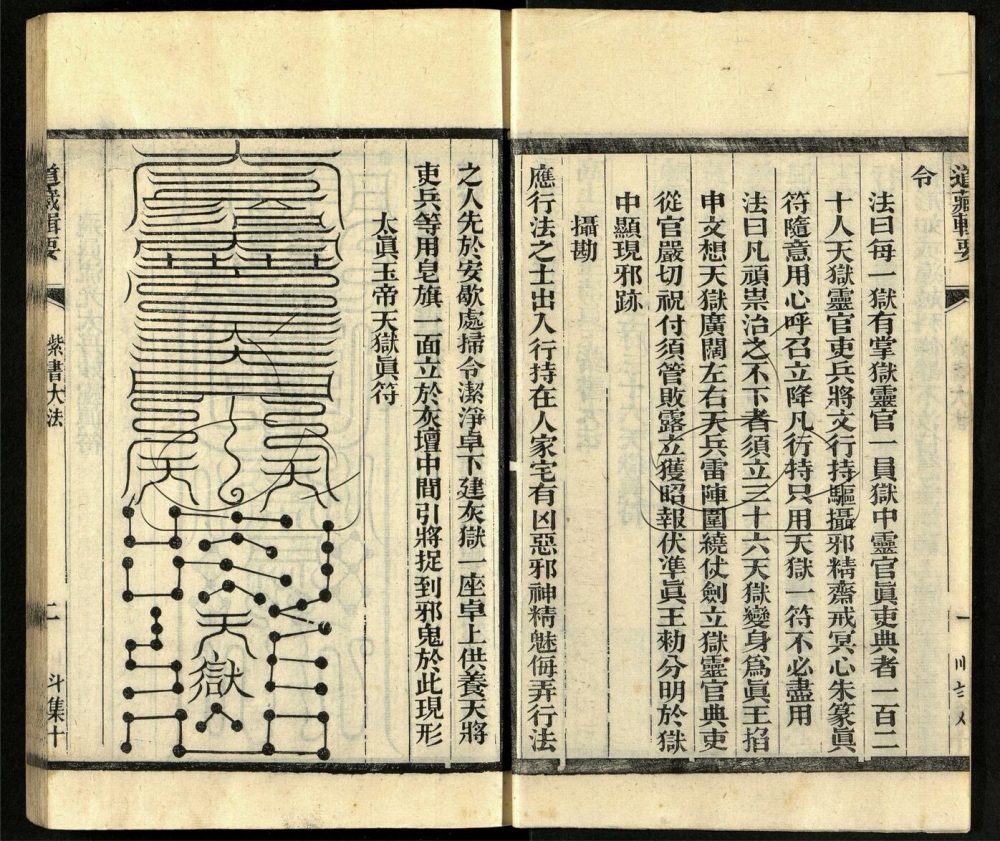 道藏輯要
令
法曰每一獄有掌獄靈官一員獄中靈官眞吏典者一百二
十人天獄靈官吏兵將文行持驅攝邪精齋戒冥心朱篆眞
符隨意用心呼召立降凡行持只用天獄一符不必盡用
法曰凡頑祟治之不下者須立三十六天獄變身爲眞王掐
申文想天獄廣闊左右天兵雷陣圍繞仗劍立獄靈官典吏
從官嚴切祝付須管敗露立獲昭報伏準眞王勑分明於獄
中顯現邪跡
攝勘
應行法之士出入行持在人家宅有凶惡邪神精魅侮弄行法
之人先於安歇處掃令潔淨卓下建灰獄一座卓上供養天將
吏兵等用皂旗一面立於灰壇中間引將捉到邪鬼於此現形
太眞玉帝天獄眞符
天
天
天獄
道藏輯要
紫書大法
二
斗集十